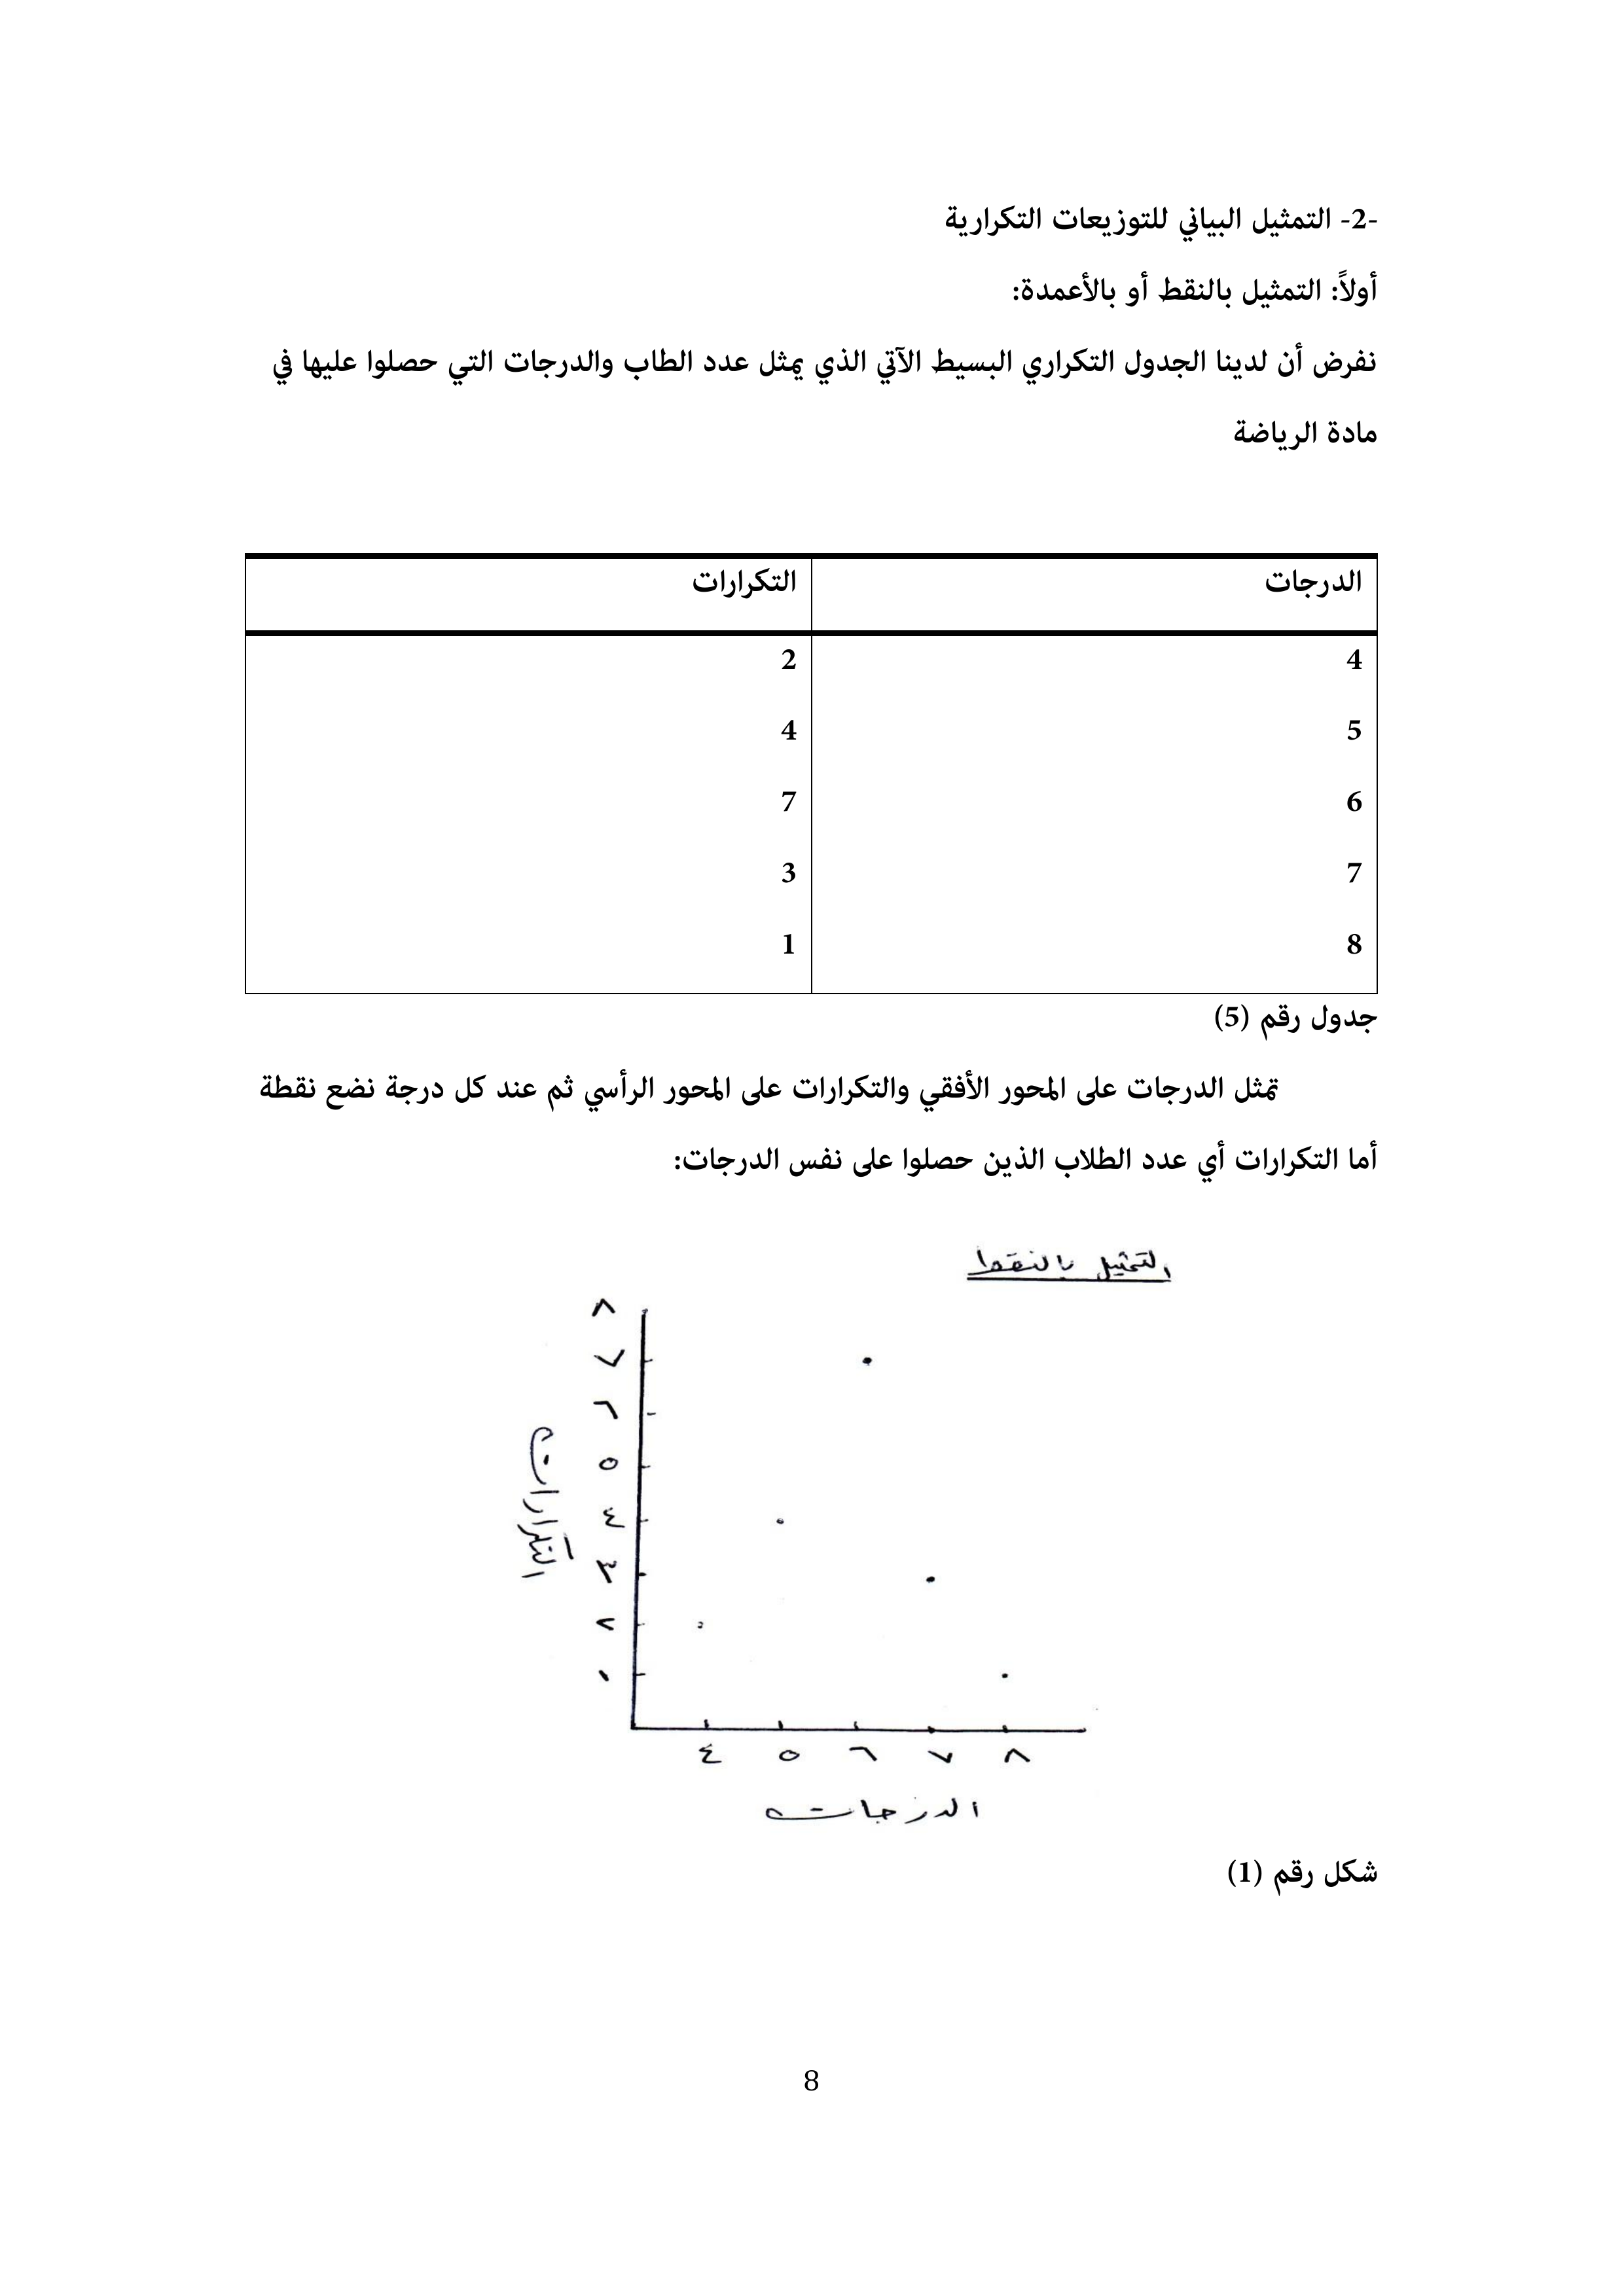 -2- التمثيل البياني للتوزيعات التكرارية
أولاً: التمثيل بالنقط أو بالأعمدة:
نفرض أن لدينا الجدول التكراري البسيط الآتي الذي يمثل عدد الطاب والدرجات التي حصلوا عليها في
مادة الرياضة
الدرجات التكرارات
4 2
5 4
6 7
7 3
8 1
جدول رقم (5)
تمثل الدرجات على المحور الأفقي والتكرارات على المحور الرأسي ثم عند كل درجة نضع نقطة
أما التكرارات أي عدد الطلاب الذين حصلوا على نفس الدرجات:
التمثيل بالنقط
٨
٧
٦
٥
٤
٣
٢
١
التكرارات
٤ ٥ ٦ ٧ ٨
الدرجات
شكل رقم (1)
8